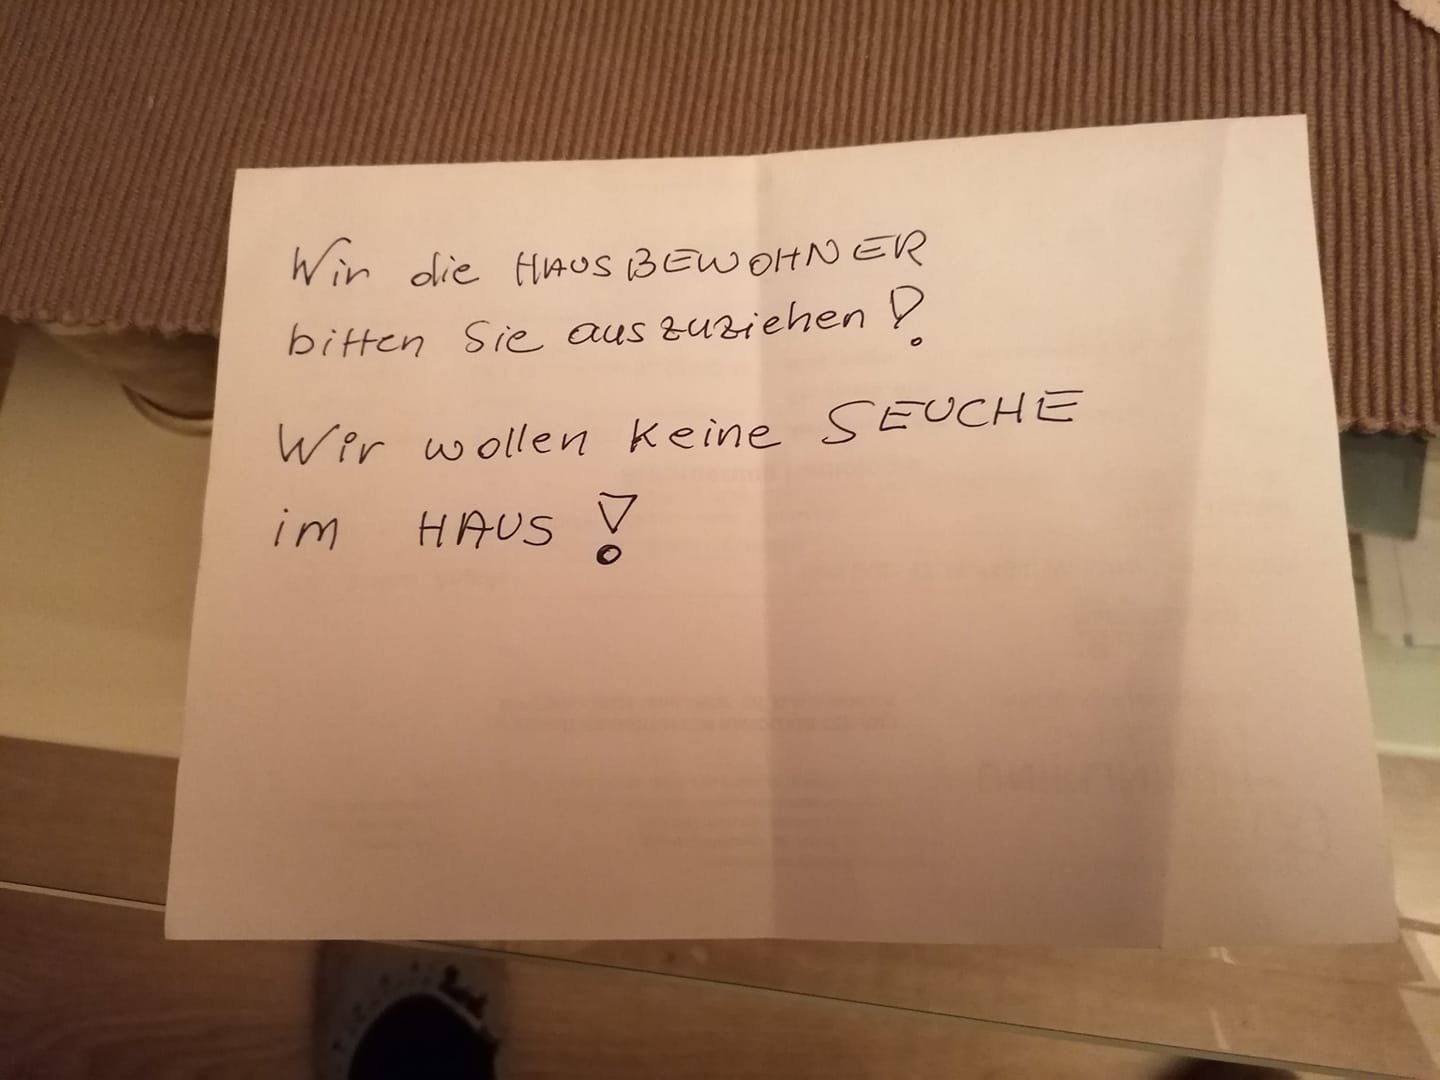 Wir die HAUSBEWOHNER
bitten Sie auszuziehen!
Wir wollen keine SEUCHE
im HAUS!